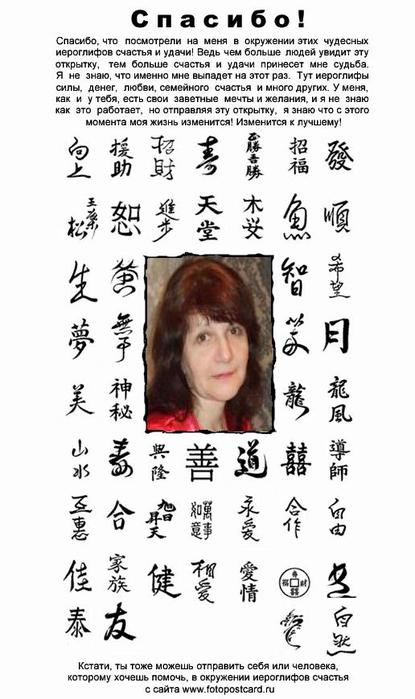 Спасибо!
Спасибо, что посмотрели на меня в окружении этих чудесных
иероглифов счастья и удачи! Ведь чем больше людей увидит эту
открытку, тем больше счастья и удачи принесет мне судьба.
Я не знаю, что именно мне выпадет на этот раз. Тут иероглифы
силы, денег, любви, семейного счастья и много других. У меня,
как и у тебя, есть свои заветные мечты и желания, и я не знаю
как это работает, но отправляя эту открытку, я знаю что с этого
момента моя жизнь изменится! Изменится к лучшему!
向上 援助 招財 壽 招福 發
松 恕 進步 天堂 魚 順
生 智 希望
夢 月
美 神秘 龍 龍風
山水 壽 興隆 善 道 囍 導師
互惠 合 旭日昇天 萬事如意 永愛 合作 自由
佳 家族 健 相愛 愛情
泰 友 自然
Кстати, ты тоже можешь отправить себя или человека,
которому хочешь помочь, в окружении иероглифов счастья
с сайта www.fotopostcard.ru